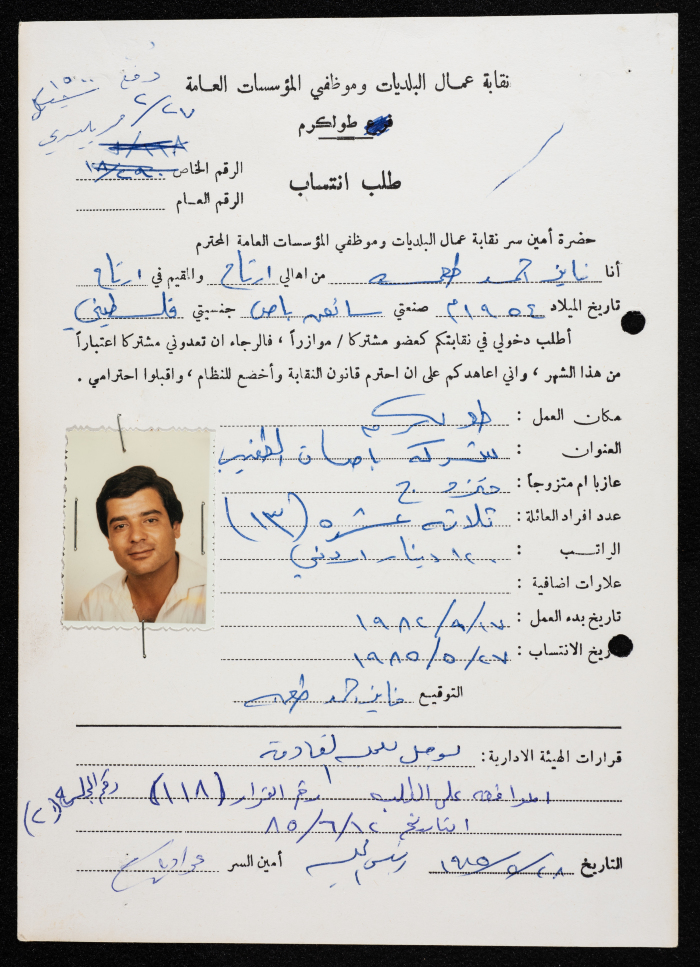 دفع ١٥٠٠ شيكل
٢/٢٧
نقابة عمال البلديات وموظفي المؤسسات العامة
فرع طولكرم
الرقم الخاص
الرقم العام
طلب انتساب
حضرة أمين سر نقابة عمال البلديات وموظفي المؤسسات العامة المحترم
أنا فايز احمد طعمه من اهالي ارتاح والمقيم في ارتاح
تاريخ الميلاد ١٩٥٤م صنعتي سائق باص جنسيتي فلسطيني
أطلب دخولي في نقابتكم كعضو مشتركا / موازراً ، فالرجاء ان تعدوني مشتركا اعتباراً
من هذا الشهر ، واني اعاهدكم على ان احترم قانون النقابة وأخضع للنظام ، واقبلوا احترامي .
مكان العمل : طولكرم
العنوان : شركة باصات
عازبا ام متزوجاً : متزوج
عدد افراد العائلة : ثلاثه عشره (١٣)
الراتب : ١٢٠ دينار اردني
علاوات اضافية :
تاريخ بدء العمل : ١٩٨٢/٩/١٧
تاريخ الانتساب : ١٩٨٥/٥/٢٧
التوقيع فايز احمد طعمه
قرارات الهيئة الادارية : يؤجل للجلسه القادمة
الموافقه على الطلب رقم القرار (١١٨) رقم الجلسة (٢)
التاريخ ٨٥/٦/١٢
التاريخ ١٩٨٥/٥/٢٨ رئيس الجلسه أمين السر